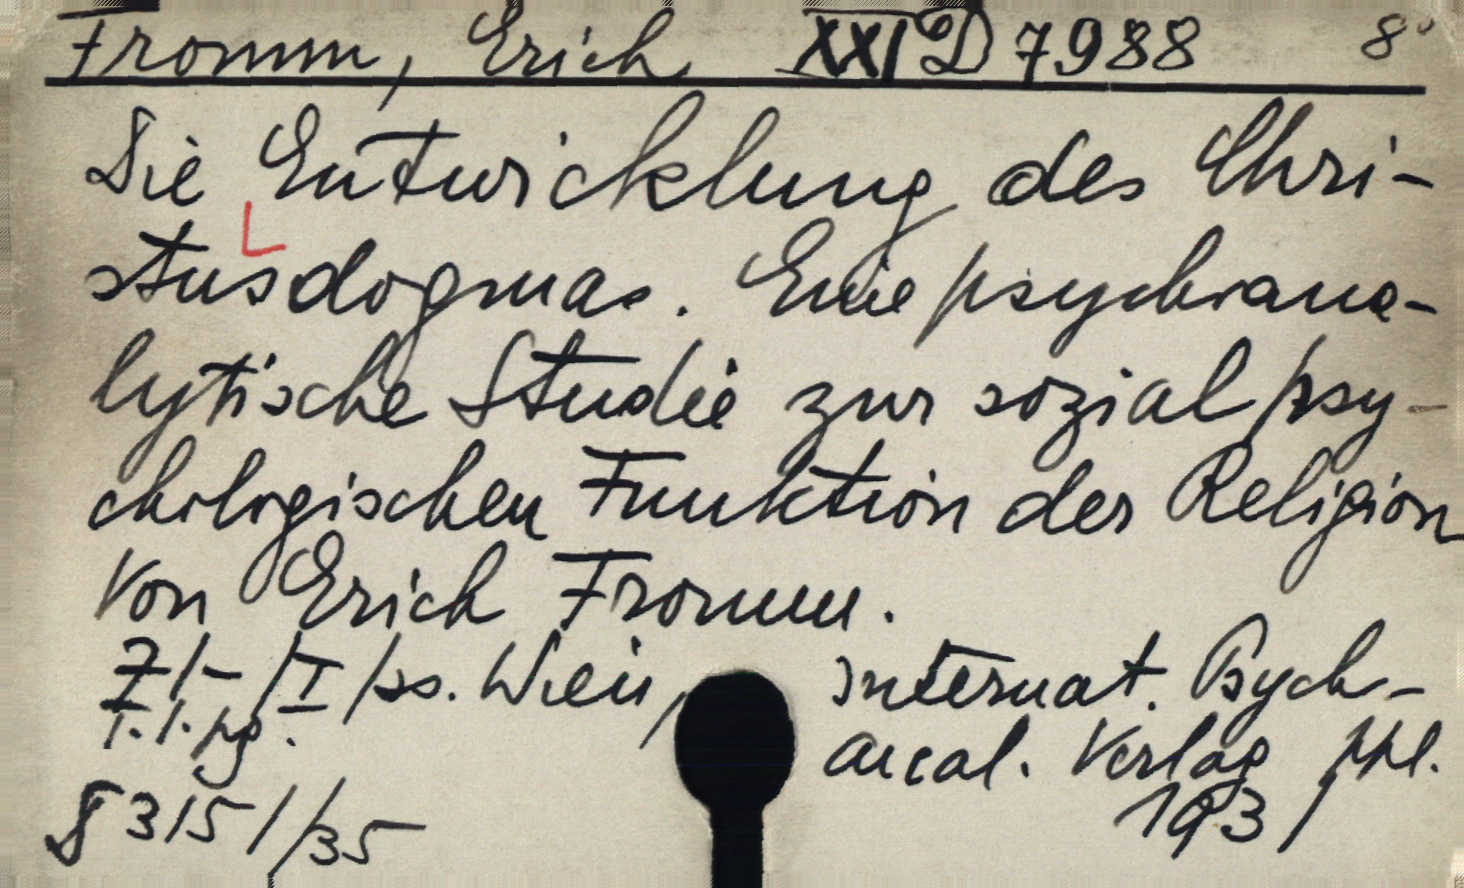 Fromm, Erich XXI D 7988 8°
Die Entwicklung des Chri-
stusdogmas. Eine psychoana-
lytische Studie zur sozialpsy-
chologischen Funktion der Religion
Von Erich Fromm.
Wien, Internat. Psych-
anal. Verlag
1931
§ 3151/35